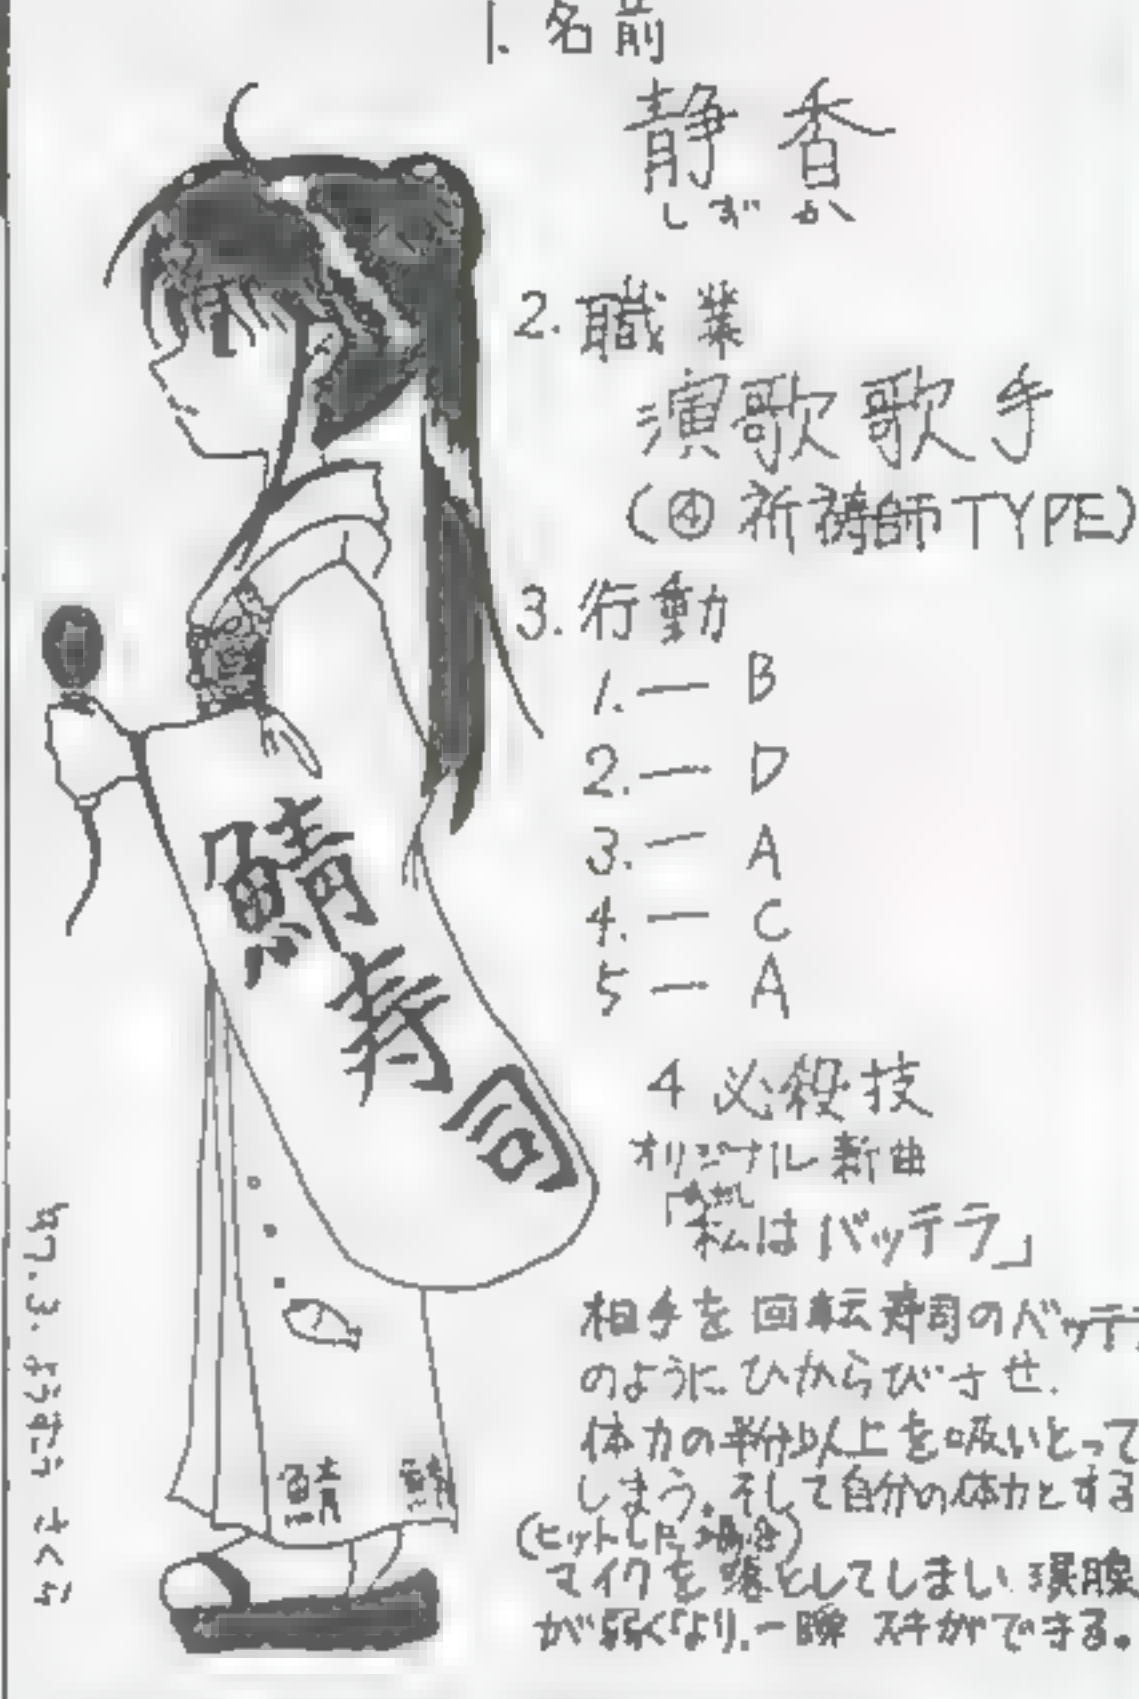 1. 名前
静香
しずか
2. 職業
演歌歌手
(④ 祈祷師TYPE)
3. 行動
1. ー B
2. ー D
3. ー A
4. ー C
5 ー A
4 必殺技
オリジナル新曲
「私はバッテラ」
相手を回転寿司のバッテラ
のようにひからびさせ.
体力の半分以上を吸いとって
しまう。そして自分の体力とする
(ヒットした場合)
マイクを落としてしまい
が弱くなり.一瞬 スキができる。
鯖寿司
鯖 鯖
97.3. ようすけ さくら